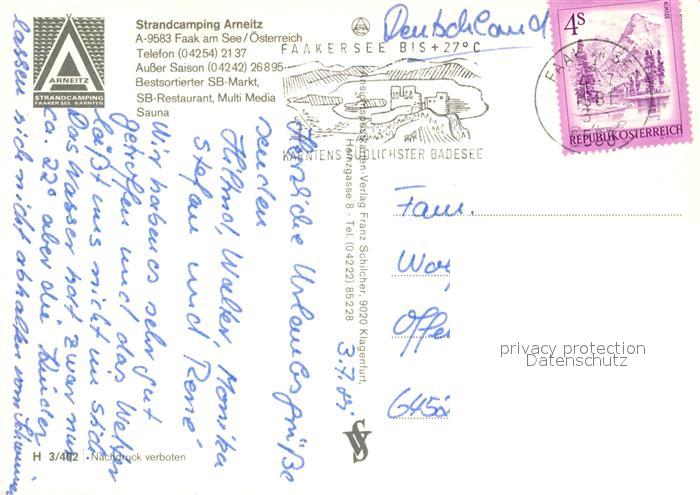 Strandcamping Arneitz
A-9583 Faak am See/Österreich
Telefon (04254) 2137
Außer Saison (04242) 26895
Bestsortierter SB-Markt,
SB-Restaurant, Multi Media
Sauna
ARNEITZ
STRANDCAMPING
FAAKER SEE · KÄRNTEN
Deutschland
FAAKERSEE BIS +27°C
KÄRNTENS SÜDLICHSTER BADESEE
4S
REPUBLIK ÖSTERREICH
Wir haben es sehr gut
getroffen und das Wetter
läßt uns nicht im Stich
Das Wasser hat zwar nur
ca. 22° aber die Kinder
lassen sich nicht abhalten vom
Herzliche Urlaubsgrüße
senden
Helmol, Walter, Monika
Stefan und René
Ansichtskarten-Verlag Franz Schilcher, 9020 Klagenfurt,
Heinzgasse 8 - Tel. (04222) 85228
Fam.
Offe
645
privacy protection
Datenschutz
H 3/402 · Nachdruck verboten